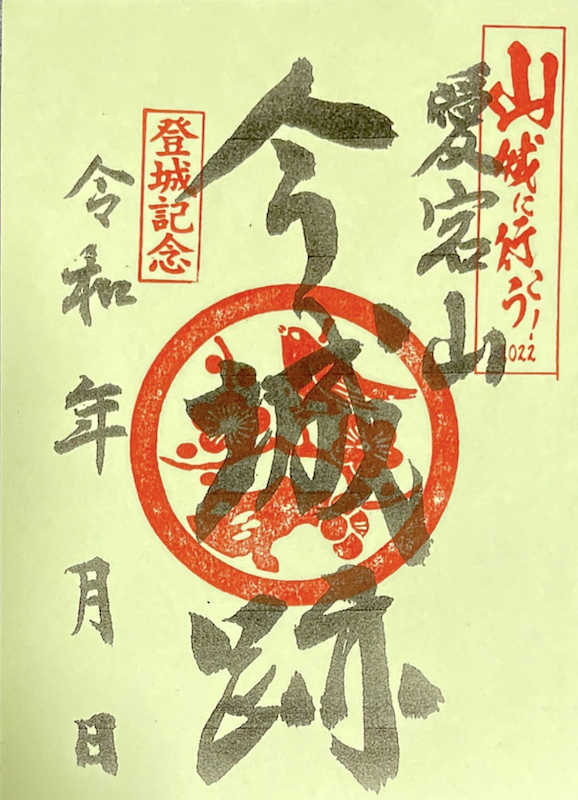 山城に行こう!
2022
愛宕山
今城跡
登城記念
令和 年 月 日